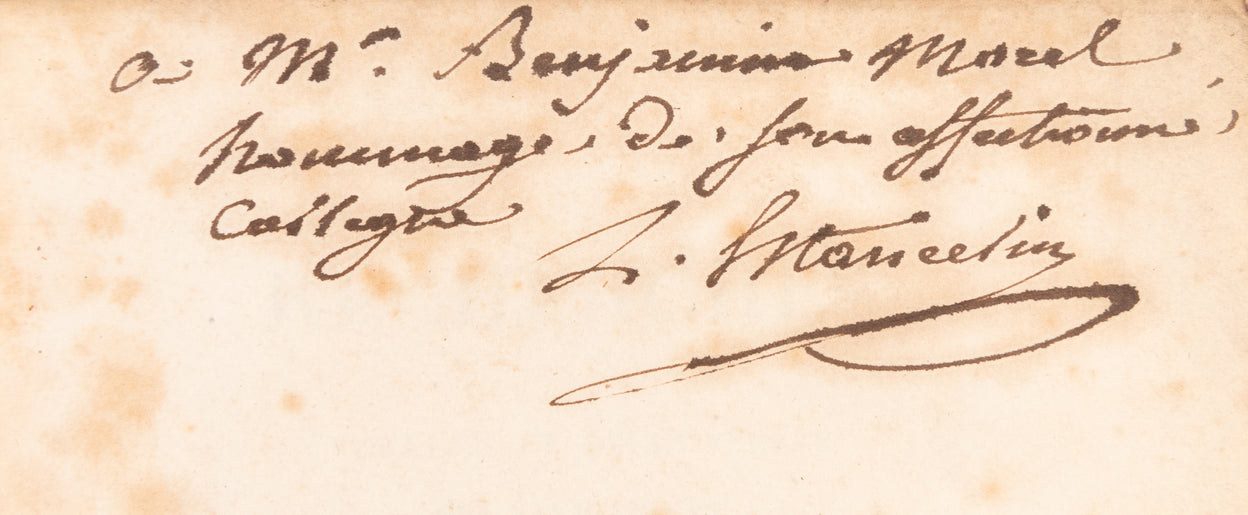 a Mr. Benjamin Morel
hommage de son affectionné
Collegue L. Estancelin